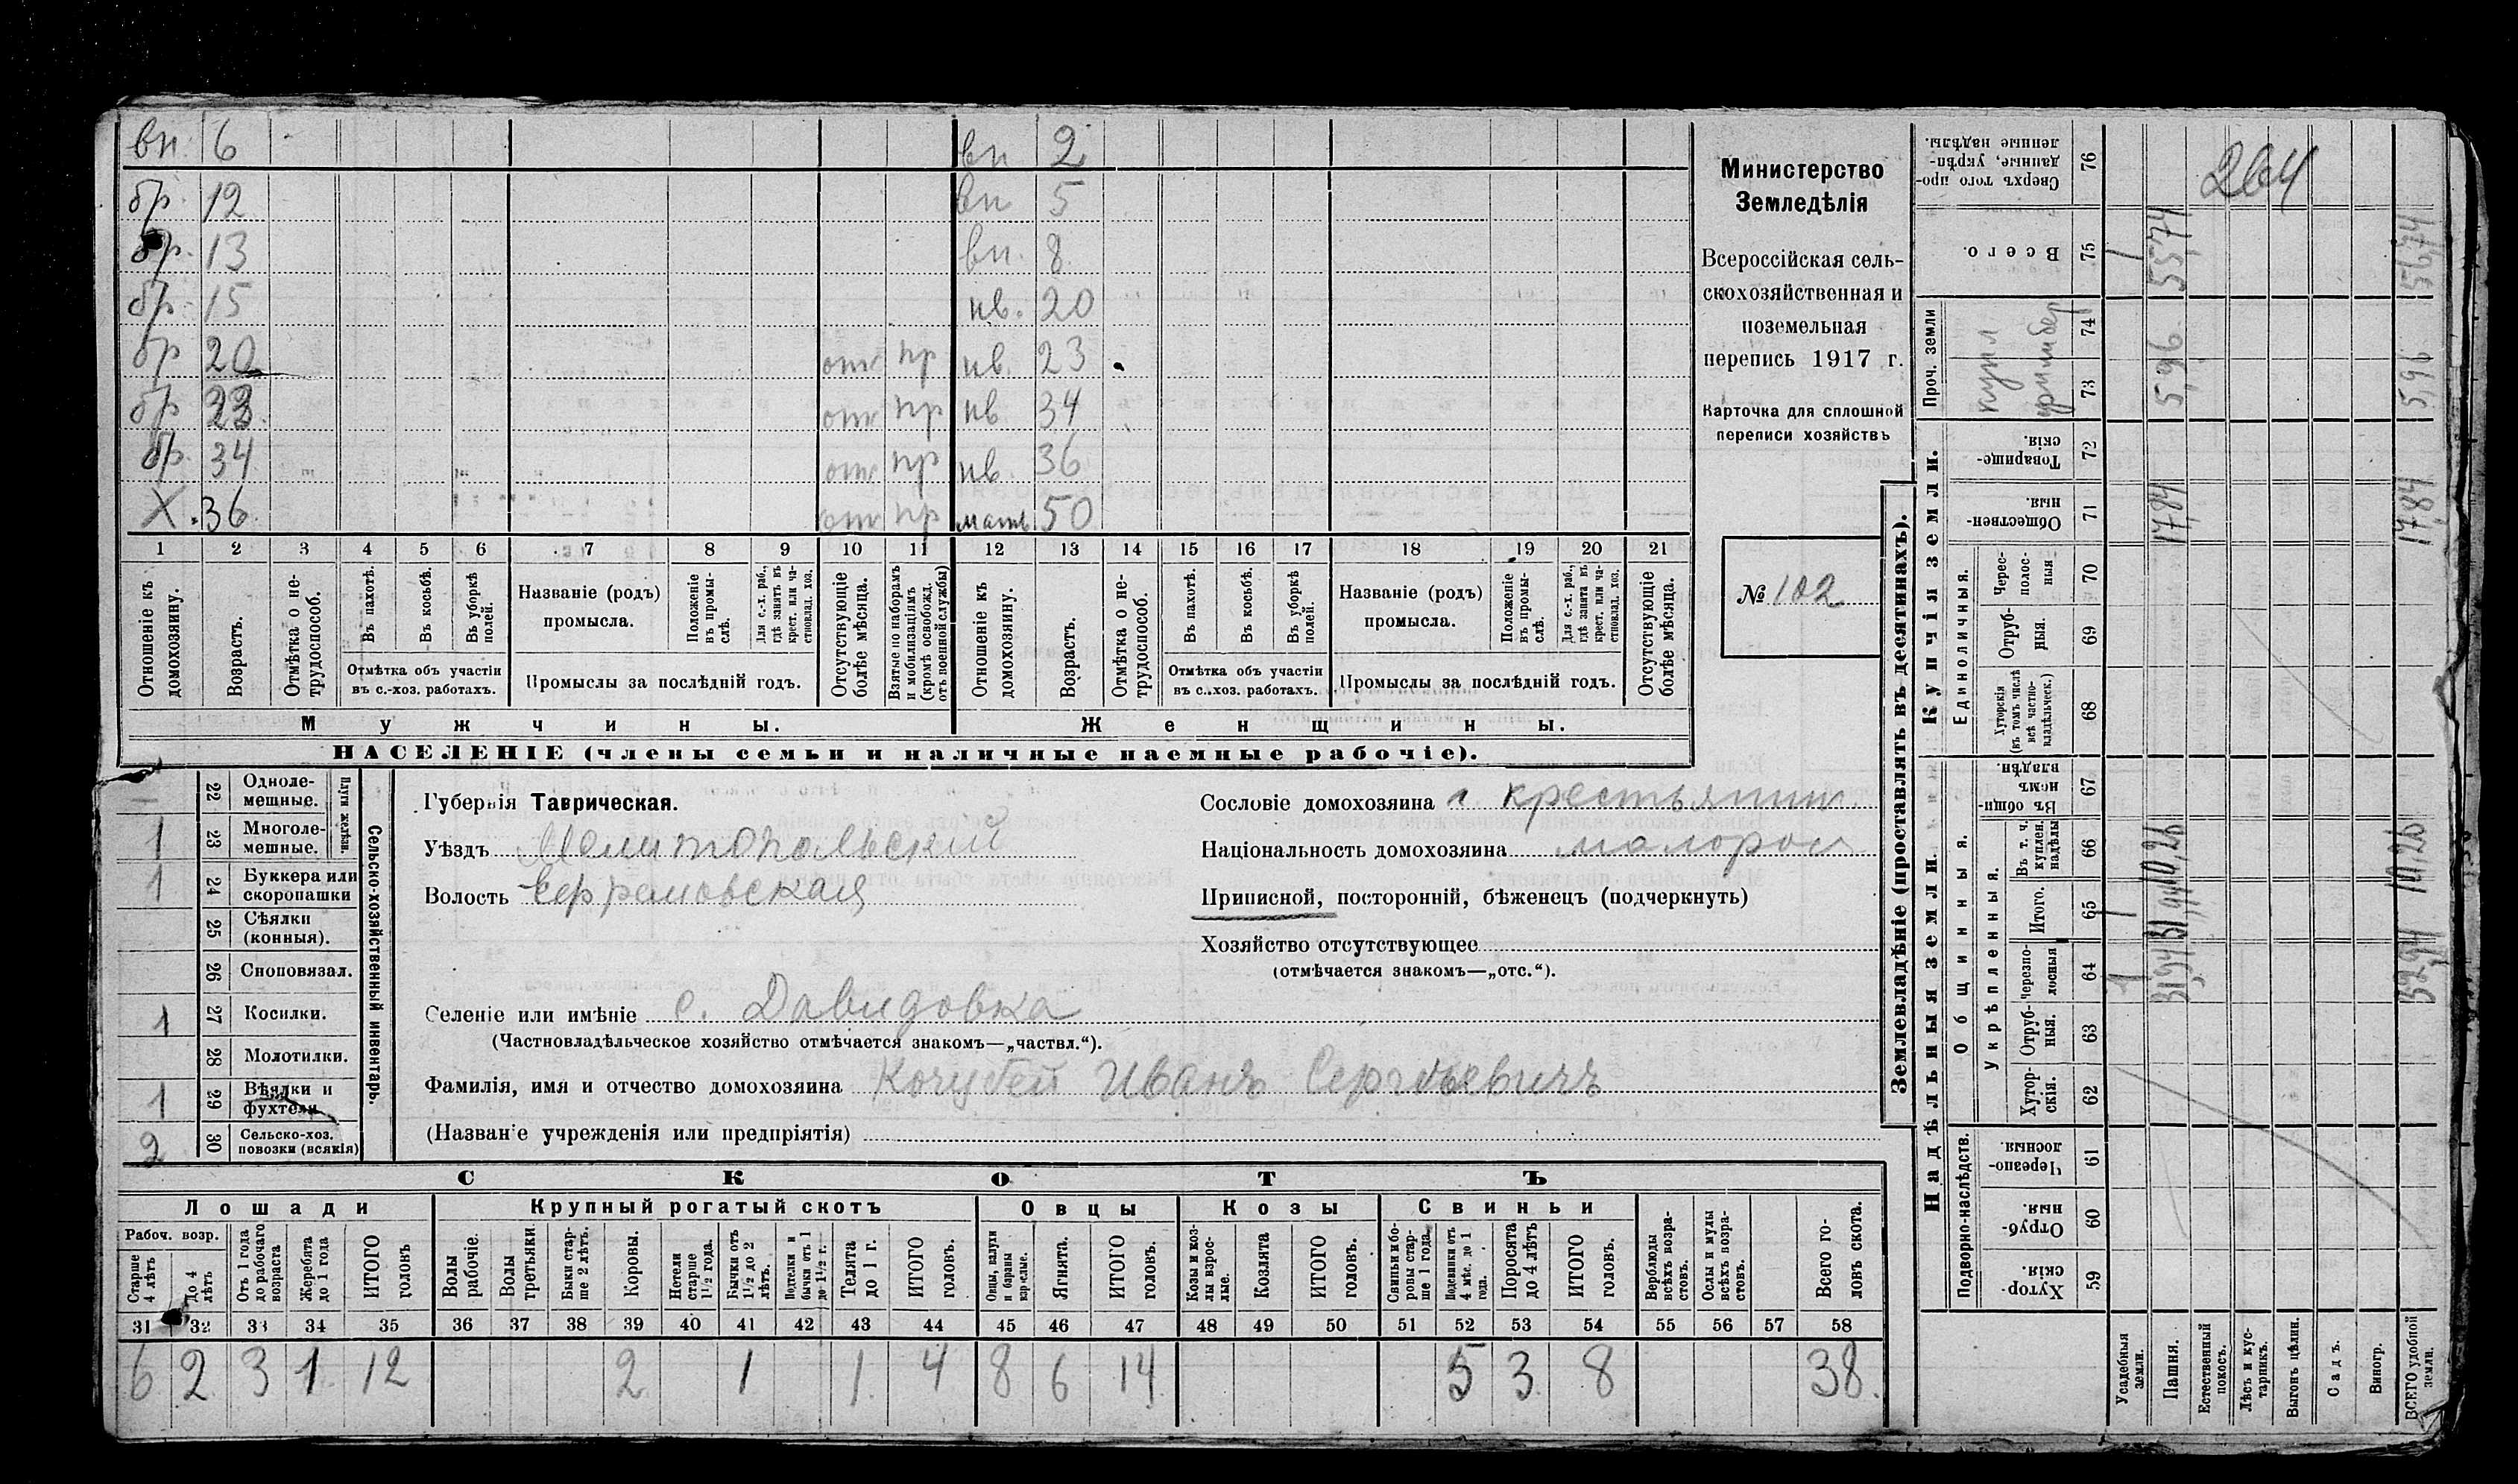 вн. 6 вн 2
бр. 12 вн 5
бр. 13 вн. 8
бр. 15 нв. 20
бр 20 отс пр нв. 23
бр 23. отс пр нв 34
бр. 34 отс пр нв. 36
Х. 36. отс пр мать 50
1 2 3 4 5 6 7 8 9 10 11 12 13 14 15 16 17 18 19 20 21
Отношеніе къ домохозяину.
Возрастъ.
Отмѣтка о не-трудоспособ.
Въ пахотѣ.
Въ косьбѣ.
Въ уборкѣ полей.
Отмѣтка объ участіи въ с.-хоз. работахъ.
Названіе (родъ) промысла.
Положеніе въ промы-слѣ.
Для с.-х. раб., гдѣ занятъ въ крест. или ча-стновлад. хоз.
Промыслы за послѣдній годъ.
Отсутствующіе болѣе мѣсяца.
Взятые по наборамъ и мобилизаціямъ (кромѣ освобожд. отъ военной службы)
Отношеніе къ домохозяину.
Возрастъ.
Отмѣтка о не-трудоспособ.
Въ пахотѣ.
Въ косьбѣ.
Въ уборкѣ полей.
Отмѣтка объ участіи въ с.-хоз. работахъ.
Названіе (родъ) промысла.
Положеніе въ промы-слѣ.
Для с.-х. раб., гдѣ занята въ крест. или ча-стновлад. хоз.
Промыслы за послѣдній годъ.
Отсутствующіе болѣе мѣсяца.
Мужчины.
Женщины.
НАСЕЛЕНІЕ (члены семьи и наличные наемные рабочіе).
Министерство
Земледѣлія
Всероссійская сель-
скохозяйственная и
поземельная
перепись 1917 г.
Карточка для сплошной
переписи хозяйствъ
№ 102
22 Одноле-мешные.
1 23 Многоле-мешные.
Плуги желѣзн.
1 24 Буккера или скоропашки
25 Сѣялки (конныя).
26 Сноповязал.
1 27 Косилки.
28 Молотилки.
1 29 Вѣялки и фухтели
2 30 Сельско-хоз. повозки (всякія)
Сельско-хозяйственный инвентарь.
Губернія Таврическая.
Уѣздъ Мелитопольский
Волость Ефремовская
Сословіе домохозяина крестьянин
Національность домохозяина малоросс
Приписной, посторонній, бѣженецъ (подчеркнуть)
Хозяйство отсутствующее
(отмѣчается знакомъ—„отс.“).
Селеніе или имѣніе с. Давидовка
(Частновладѣльческое хозяйство отмѣчается знакомъ—„частвл.“).
Фамилія, имя и отчество домохозяина Кочубей Иванъ Сергѣевичъ
(Названіе учрежденія или предпріятія)
СКОТЪ
Лошади Крупный рогатый скотъ Овцы Козы Свиньи
Рабоч. возр.
Старше 4 лѣтъ
До 4 лѣтъ
Отъ 1 года до рабочаго возраста
Жеребята до 1 года
ИТОГО головъ
Волы рабочіе.
Волы третьяки.
Быки стар-ше 2 лѣтъ.
Коровы.
Нетели старше 1½ года.
Бычки отъ 1½ до 2 лѣтъ.
Подтелки и бычки отъ 1 до 1½ г.
Телята до 1 г.
ИТОГО головъ.
Овцы, валухи и бараны взрослые.
Ягнята.
ИТОГО головъ.
Козы и коз-лы взрос-лые.
Козлята
ИТОГО головъ.
Свиньи и бо-ровы стар-ше 1 года.
Подсвинки отъ 4 мѣс. до 1 года.
Поросята до 4 лѣтъ
ИТОГО головъ.
Верблюды всѣхъ возра-стовъ.
Ослы и мулы всѣхъ возра-стовъ.
Всего го-ловъ скота.
31 32 33 34 35 36 37 38 39 40 41 42 43 44 45 46 47 48 49 50 51 52 53 54 55 56 57 58
6 2 3 1 12 2 1 1 4 8 6 14 5 3 8 38.
Землевладѣніе (проставлять въ десятинахъ).
Надѣльныя земли.
Купчія земли.
Проч. земли
Подворно-наслѣдств.
Общинныя.
Укрѣпленныя.
Единоличныя.
76 Сверхъ того про-данные, укрѣп-ленные надѣлы.
264
75 Всего. 1 55,74 56,74
74
73
купл
5,96 5,96
72 Товарище-скія.
71 Обществен-ныя 17,84 17,84
70 Черес-полос-ныя
69 Отруб-ныя.
68 Хуторскія (въ томъ числѣ всѣ частно-владѣльческ.)
67 Въ общи-номъ владѣн.
66 Въ т. ч. куплен. надѣлы 10,26 10,26
65 Итого. 1 31,94
64 Черезпо-лосныя 1 31,94 32,94
63 Отруб-ныя.
62 Хутор-скія.
61 Черезпо-лосныя
60 Отруб-ныя.
59 Хутор-скія.
Усадебныя земли.
Пашня.
Естественный покосъ.
Лѣсъ и кус-тарникъ.
Выгонъ цѣлин.
Садъ.
Виногр.
ВСЕГО удобной земли.